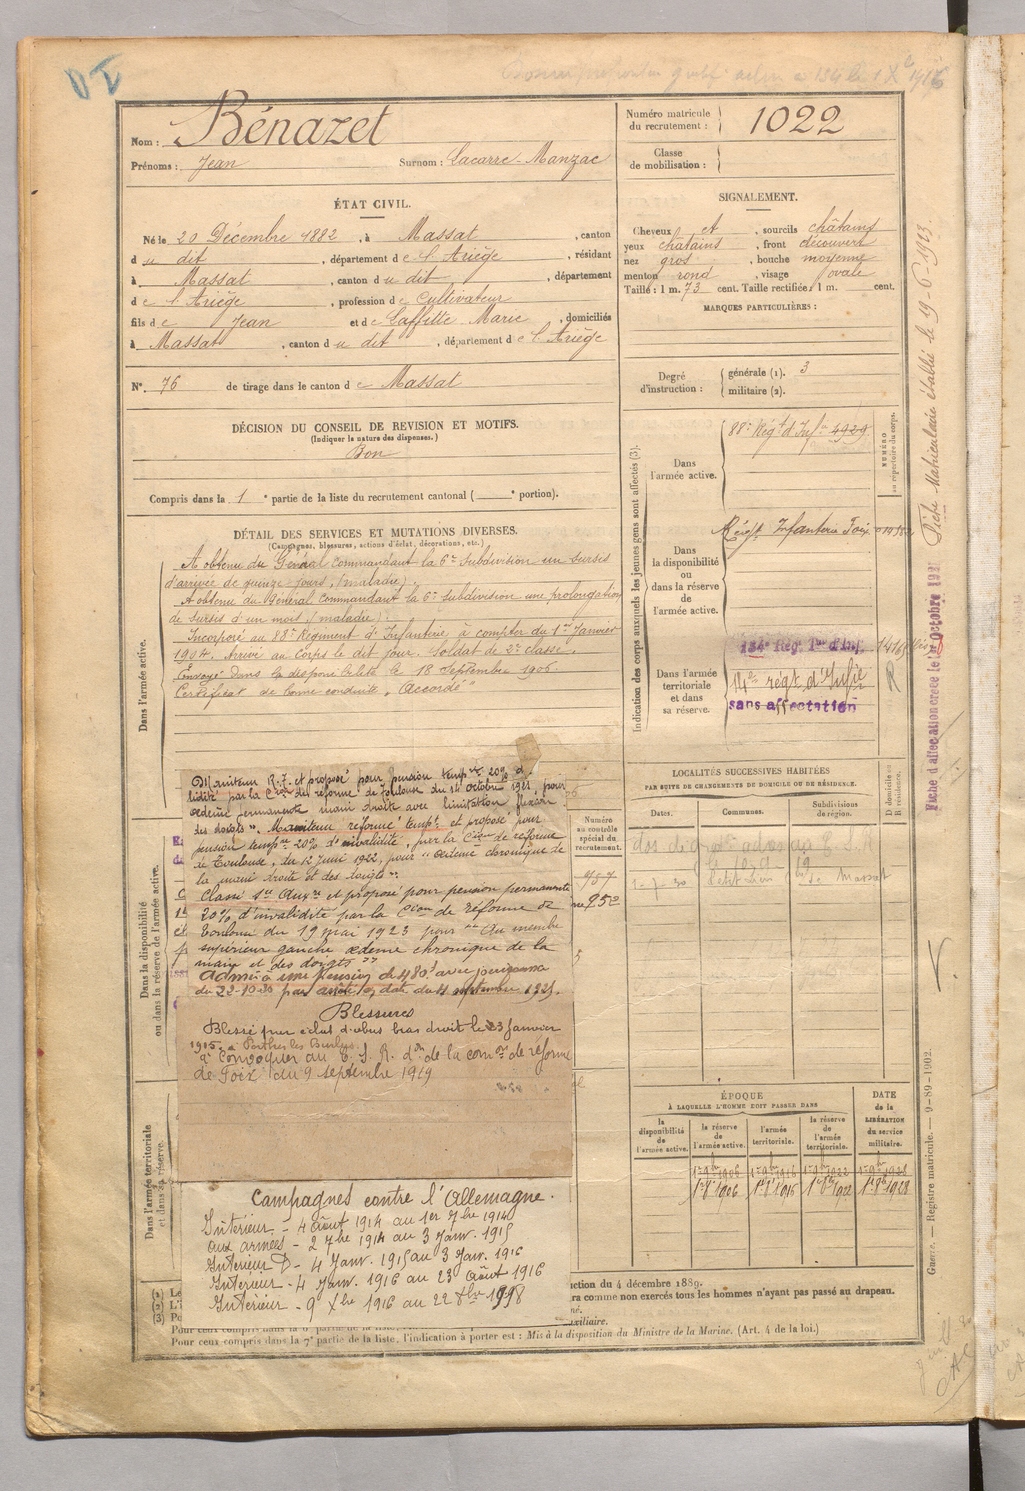 Nom : Bénazet
Prénoms : Jean Surnom : Lacarre-Manzac
Numéro matricule du recrutement : 1022
Classe de mobilisation :
ÉTAT CIVIL.
Né le 20 Décembre 1882, à Massat, canton
du dit, département de l'Ariège, résidant
à Massat, canton du dit, département
de l'Ariège, profession de Cultivateur
fils de Jean et de Laffitte Marie, domiciliés
à Massat, canton du dit, département de l'Ariège
N° 76 de tirage dans le canton de Massat
DÉCISION DU CONSEIL DE REVISION ET MOTIFS.
(Indiquer la nature des dispenses.)
Bon
Compris dans la 1e partie de la liste du recrutement cantonal ( e portion).
SIGNALEMENT.
Cheveux et, sourcils châtains
yeux chatains, front découvert
nez gros, bouche moyenne
menton rond, visage ovale
Taille : 1 m. 73 cent. Taille rectifiée : 1 m. cent.
MARQUES PARTICULIÈRES :
Degré d'instruction : générale (1). 3
militaire (2).
DÉTAIL DES SERVICES ET MUTATIONS DIVERSES.
(Campagnes, blessures, actions d'éclat, décorations, etc.)
Dans l'armée active.
A obtenu du Général commandant la 6e Subdivision un sursis
d'arrivée de quinze jours. (maladie).
A obtenu du Général commandant la 6e Subdivision une prolongation
de sursis d'un mois (maladie).
Incorporé au 88e Régiment d'Infanterie à compter du 1er Janvier
1904. Arrivé au Corps le dit jour. Soldat de 2e classe.
Envoyé dans la disponibilité le 18 Septembre 1906
Certificat de bonne conduite "Accordé"
Dans la disponibilité ou dans la réserve de l'armée active.
Maintenu R.T. et proposé pour pension tempre 20% d'
lidité par la Cion de réforme de Toulouse du 14 octobre 1921, pour
œdème permanente main droite avec limitation flexion
des doigts". Maintenu réformé tempre et proposé pour
pension tempre 20% d'invalidité, par la Cion de réforme
de Toulouse, du 12 juin 1922, pour "œdème chronique de
la main droite et des doigts".
Classé Sce Auxre et proposé pour pension permanente
20% d'invalidité par la Cion de réforme de
Toulouse du 19 mai 1923 pour "Au membre
supérieur gauche œdème chronique de la
main et des doigts"
Admis à une pension de 480f avec jouissance
du 22-10-20 par arrêté en date du 4 septembre 1925.
Blessures
Blessé par éclat d'obus bras droit le 23 Janvier
1915 à Perthes les Hurlus.
Convoquer au C. S. R. don de la comon de réforme
de Foix du 9 septembre 1919
Dans l'armée territoriale et dans sa réserve.
Campagnes contre l'Allemagne.
Intérieur - 4 août 1914 au 1er 7bre 1914
aux armées - 2 7bre 1914 au 3 Janv. 1915
Intérieur D - 4 Janv. 1915 au 3 Janv. 1916
Intérieur - 4 Janv. 1916 au 23 août 1916
Intérieur - 9 Xbre 1916 au 22 8bre 1918
Indication des corps auxquels les jeunes gens sont affectés (3).
NUMÉRO au répertoire du corps.
Dans l'armée active.
88e Régt d'Infie 4929
Dans la disponibilité ou dans la réserve de l'armée active.
Régt Infanterie Foix
Dans l'armée territoriale et dans sa réserve.
134e Rég. Ter. d'Inf.
14e régt d'Infie
sans affectation
R
LOCALITÉS SUCCESSIVES HABITÉES
PAR SUITE DE CHANGEMENTS DE DOMICILE OU DE RÉSIDENCE.
Dates. Communes. Subdivisions de région. D domicile ou R résidence.
Massat
Numéro au contrôle spécial du recrutement.
ÉPOQUE
À LAQUELLE L'HOMME DOIT PASSER DANS
la disponibilité de l'armée active. la réserve de l'armée active. l'armée territoriale. la réserve de l'armée territoriale. DATE de la LIBÉRATION du service militaire.
1er 8bre 1906 1er 8bre 1916 1er 8bre 1922 1er 8bre 1928
ction du 4 décembre 1889.
ra comme non exercés tous les hommes n'ayant pas passé au drapeau.
né.
uxiliaire.
Pour ceux compris dans la 7e partie de la liste, l'indication à porter est : Mis à la disposition du Ministre de la Marine. (Art. 4 de la loi.)
Guerre. — Registre matricule. — 9-89-1902.
Fiche Matriculaire établie le 19-6-1923.
Fiche d'affectation créée le Octobre 1921